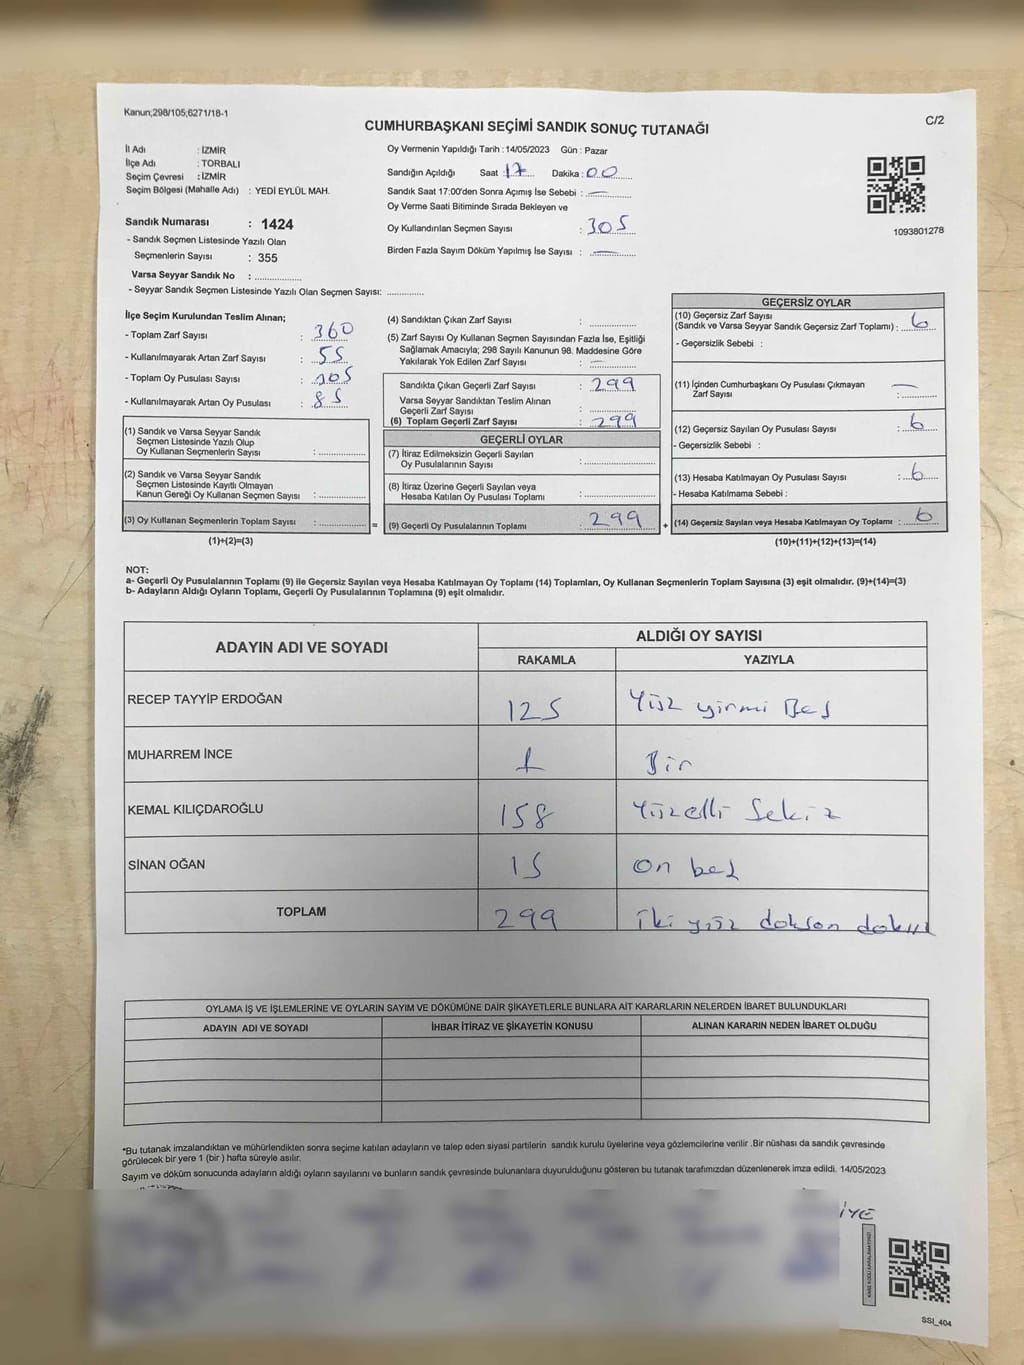 Kanun;298/105;6271/18-1
C/2
CUMHURBAŞKANI SEÇİMİ SANDIK SONUÇ TUTANAĞI
İl Adı : İZMİR
İlçe Adı : TORBALI
Seçim Çevresi : İZMİR
Seçim Bölgesi (Mahalle Adı) : YEDİ EYLÜL MAH.
Oy Vermenin Yapıldığı Tarih : 14/05/2023 Gün : Pazar
Sandığın Açıldığı Saat : 17 Dakika : 00
Sandık Saat 17:00'den Sonra Açımış İse Sebebi : —
Oy Verme Saati Bitiminde Sırada Bekleyen ve
Oy Kullandırılan Seçmen Sayısı : 305
Birden Fazla Sayım Döküm Yapılmış İse Sayısı : —
1093801278
Sandık Numarası : 1424
- Sandık Seçmen Listesinde Yazılı Olan
Seçmenlerin Sayısı : 355
Varsa Seyyar Sandık No : ..............
- Seyyar Sandık Seçmen Listesinde Yazılı Olan Seçmen Sayısı: ..............
İlçe Seçim Kurulundan Teslim Alınan;
- Toplam Zarf Sayısı : 360
- Kullanılmayarak Artan Zarf Sayısı : 55
- Toplam Oy Pusulası Sayısı :
- Kullanılmayarak Artan Oy Pusulası : 85
(1) Sandık ve Varsa Seyyar Sandık
Seçmen Listesinde Yazılı Olup
Oy Kullanan Seçmenlerin Sayısı : ..............
(2) Sandık ve Varsa Seyyar Sandık
Seçmen Listesinde Kayıtlı Olmayan
Kanun Gereği Oy Kullanan Seçmen Sayısı : ..............
(3) Oy Kullanan Seçmenlerin Toplam Sayısı : .............. =
(1)+(2)=(3)
(4) Sandıktan Çıkan Zarf Sayısı : ..............
(5) Zarf Sayısı Oy Kullanan Seçmen Sayısından Fazla İse, Eşitliği
Sağlamak Amacıyla; 298 Sayılı Kanunun 98. Maddesine Göre
Yakılarak Yok Edilen Zarf Sayısı : —
Sandıkta Çıkan Geçerli Zarf Sayısı : 299
Varsa Seyyar Sandıktan Teslim Alınan
Geçerli Zarf Sayısı : ..............
(6) Toplam Geçerli Zarf Sayısı : 299
GEÇERLİ OYLAR
(7) İtiraz Edilmeksizin Geçerli Sayılan
Oy Pusulalarının Sayısı : ..............
(8) İtiraz Üzerine Geçerli Sayılan veya
Hesaba Katılan Oy Pusulası Toplamı : ..............
(9) Geçerli Oy Pusulalarının Toplamı : 299 +
GEÇERSİZ OYLAR
(10) Geçersiz Zarf Sayısı
(Sandık ve Varsa Seyyar Sandık Geçersiz Zarf Toplamı) : 6
- Geçersizlik Sebebi :
(11) İçinden Cumhurbaşkanı Oy Pusulası Çıkmayan
Zarf Sayısı : —
(12) Geçersiz Sayılan Oy Pusulası Sayısı : 6
- Geçersizlik Sebebi :
(13) Hesaba Katılmayan Oy Pusulası Sayısı : 6
- Hesaba Katılmama Sebebi :
(14) Geçersiz Sayılan veya Hesaba Katılmayan Oy Toplamı : 6
(10)+(11)+(12)+(13)=(14)
NOT:
a- Geçerli Oy Pusulalarının Toplamı (9) ile Geçersiz Sayılan veya Hesaba Katılmayan Oy Toplamı (14) Toplamları, Oy Kullanan Seçmenlerin Toplam Sayısına (3) eşit olmalıdır. (9)+(14)=(3)
b- Adayların Aldığı Oyların Toplamı, Geçerli Oy Pusulalarının Toplamına (9) eşit olmalıdır.
ADAYIN ADI VE SOYADI ALDIĞI OY SAYISI
RAKAMLA YAZIYLA
RECEP TAYYİP ERDOĞAN 125 Yüz yirmi Beş
MUHARREM İNCE 1 Bir
KEMAL KILIÇDAROĞLU 158 Yüzelli Sekiz
SİNAN OĞAN 15 On beş
TOPLAM 299 iki yüz dokson dokuz
OYLAMA İŞ VE İŞLEMLERİNE VE OYLARIN SAYIM VE DÖKÜMÜNE DAİR ŞİKAYETLERLE BUNLARA AİT KARARLARIN NELERDEN İBARET BULUNDUKLARI
ADAYIN ADI VE SOYADI İHBAR İTİRAZ VE ŞİKAYETİN KONUSU ALINAN KARARIN NEDEN İBARET OLDUĞU
*Bu tutanak imzalandıktan ve mühürlendikten sonra seçime katılan adayların ve talep eden siyasi partilerin sandık kurulu üyelerine veya gözlemcilerine verilir .Bir nüshası da sandık çevresinde
görülecek bir yere 1 (bir ) hafta süreyle asılır.
Sayım ve döküm sonucunda adayların aldığı oyların sayılarını ve bunların sandık çevresinde bulunanlara duyurulduğunu gösteren bu tutanak tarafımızdan düzenlenerek imza edildi. 14/05/2023
İYE
SSI_404